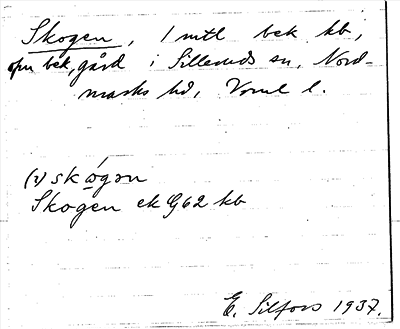 Skogen, 1 mtl bek kb,
ofm bek, gård i Sillerud sn, Nord-
marks hd, Vrml l.
(2) skógən
Skogen ek G62 kb
E. Silfors 1937.